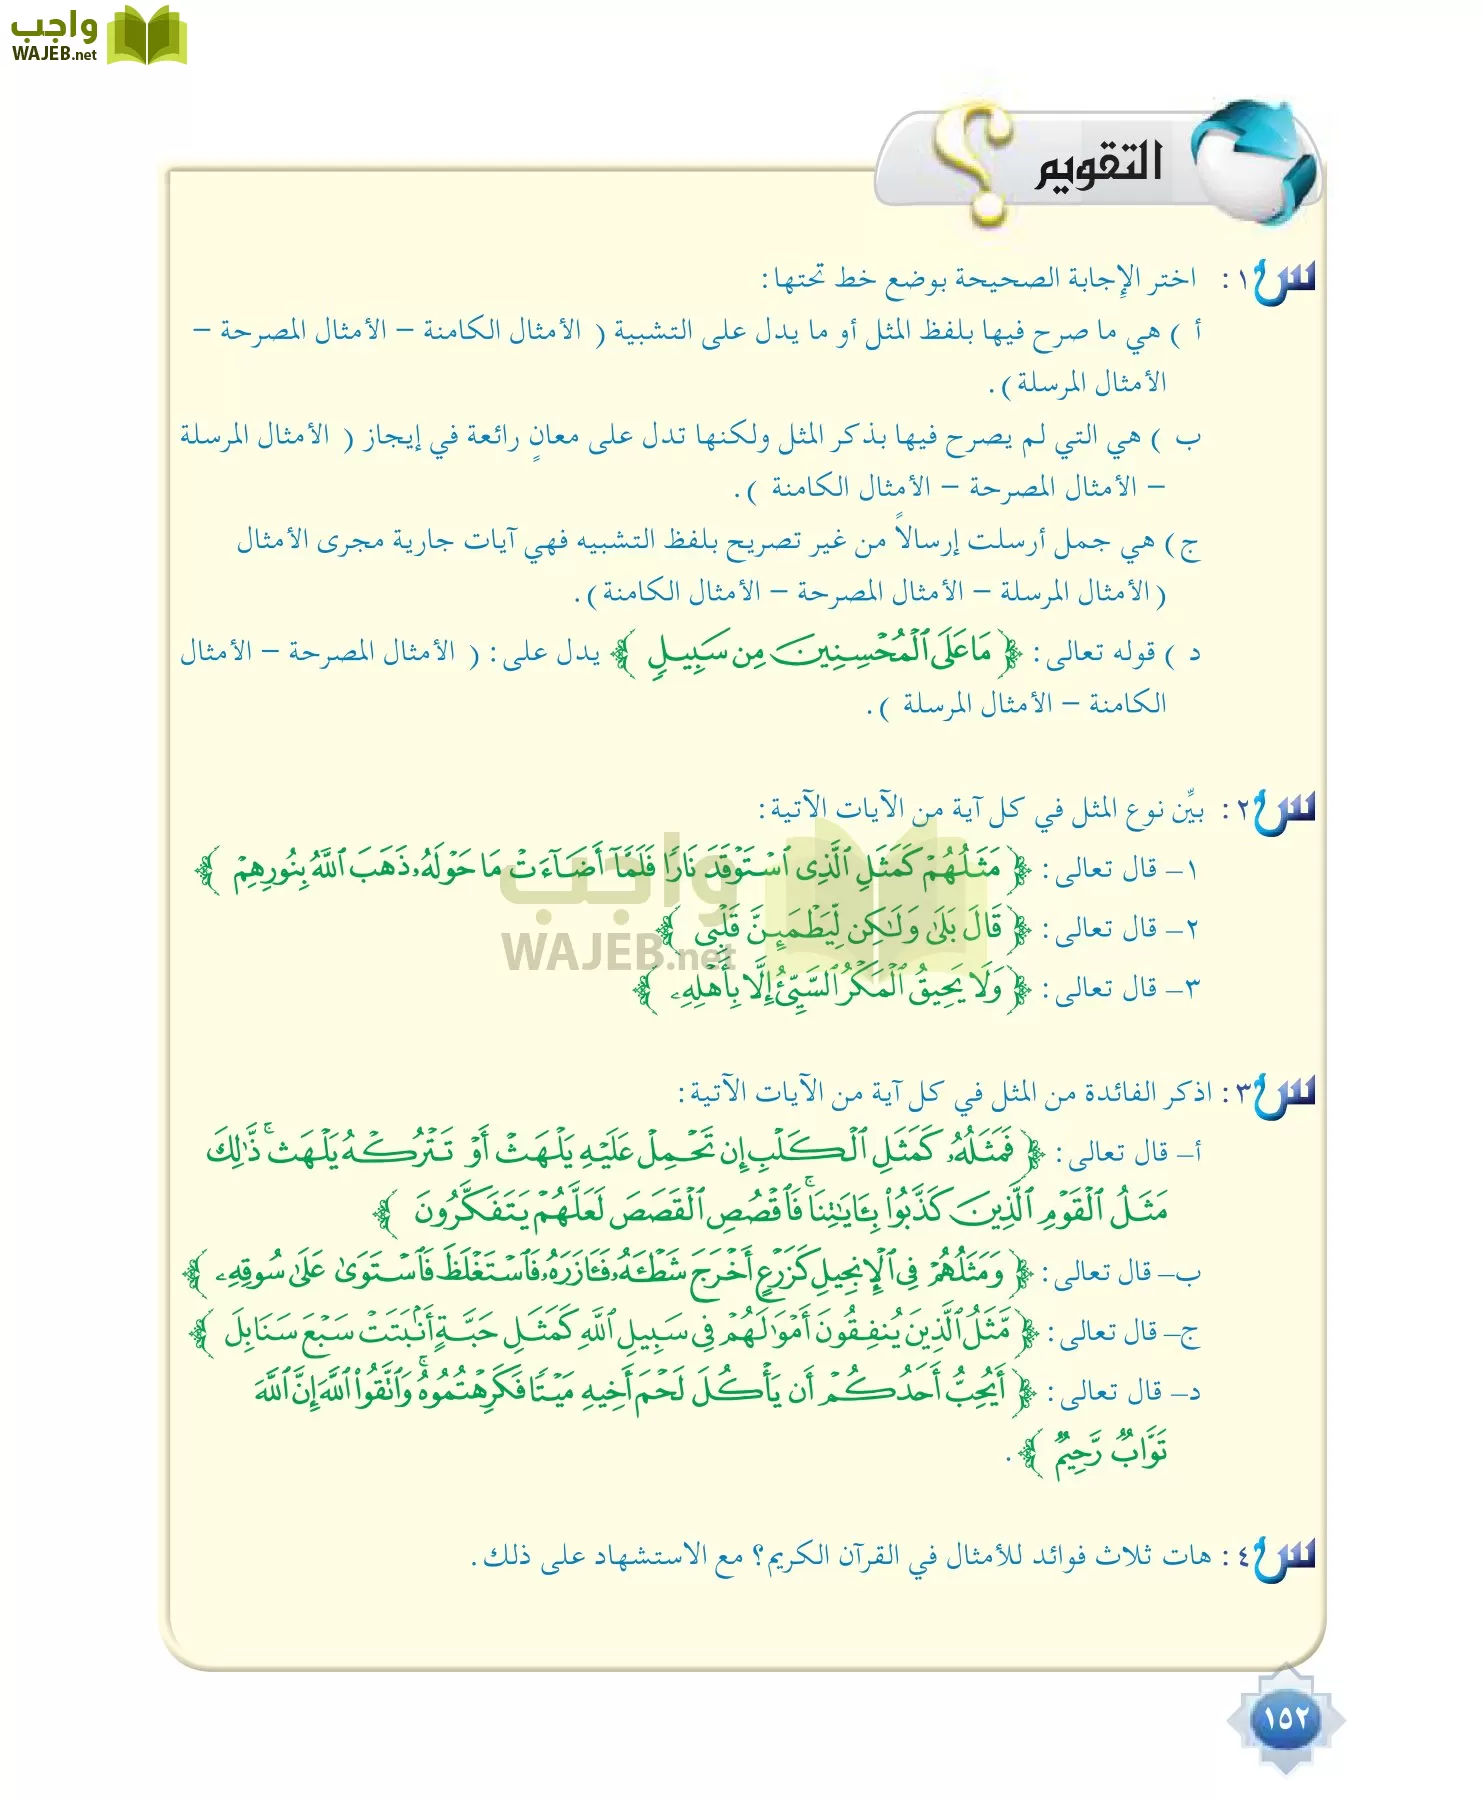 واجب
WAJEB.net
التقويم
س١: اختر الإجابة الصحيحة بوضع خط تحتها:
أ ) هي ما صرح فيها بلفظ المثل أو ما يدل على التشبية ( الأمثال الكامنة – الأمثال المصرحة –
الأمثال المرسلة).
ب ) هي التي لم يصرح فيها بذكر المثل ولكنها تدل على معانٍ رائعة في إيجاز ( الأمثال المرسلة
– الأمثال المصرحة – الأمثال الكامنة ).
ج) هي جمل أرسلت إرسالاً من غير تصريح بلفظ التشبيه فهي آيات جارية مجرى الأمثال
( الأمثال المرسلة – الأمثال المصرحة – الأمثال الكامنة).
د ) قوله تعالى: ﴿ مَا عَلَى ٱلْمُحْسِنِينَ مِن سَبِيلٍ ﴾ يدل على: ( الأمثال المصرحة – الأمثال
الكامنة – الأمثال المرسلة ).
س٢: بيِّن نوع المثل في كل آية من الآيات الآتية:
١– قال تعالى: ﴿ مَثَلُهُمْ كَمَثَلِ ٱلَّذِى ٱسْتَوْقَدَ نَارًا فَلَمَّآ أَضَآءَتْ مَا حَوْلَهُۥ ذَهَبَ ٱللَّهُ بِنُورِهِمْ ﴾
٢– قال تعالى: ﴿ قَالَ بَلَىٰ وَلَٰكِن لِّيَطْمَئِنَّ قَلْبِى ﴾
٣– قال تعالى: ﴿ وَلَا يَحِيقُ ٱلْمَكْرُ ٱلسَّيِّئُ إِلَّا بِأَهْلِهِۦ ﴾
واجب
WAJEB.net
س٣: اذكر الفائدة من المثل في كل آية من الآيات الآتية:
أ– قال تعالى: ﴿ فَمَثَلُهُۥ كَمَثَلِ ٱلْكَلْبِ إِن تَحْمِلْ عَلَيْهِ يَلْهَثْ أَوْ تَتْرُكْهُ يَلْهَث ۚ ذَّٰلِكَ
مَثَلُ ٱلْقَوْمِ ٱلَّذِينَ كَذَّبُوا۟ بِـَٔايَٰتِنَا ۚ فَٱقْصُصِ ٱلْقَصَصَ لَعَلَّهُمْ يَتَفَكَّرُونَ ﴾
ب– قال تعالى: ﴿ وَمَثَلُهُمْ فِى ٱلْإِنجِيلِ كَزَرْعٍ أَخْرَجَ شَطْـَٔهُۥ فَـَٔازَرَهُۥ فَٱسْتَغْلَظَ فَٱسْتَوَىٰ عَلَىٰ سُوقِهِۦ ﴾
ج– قال تعالى: ﴿ مَّثَلُ ٱلَّذِينَ يُنفِقُونَ أَمْوَٰلَهُمْ فِى سَبِيلِ ٱللَّهِ كَمَثَلِ حَبَّةٍ أَنۢبَتَتْ سَبْعَ سَنَابِلَ ﴾
د– قال تعالى: ﴿ أَيُحِبُّ أَحَدُكُمْ أَن يَأْكُلَ لَحْمَ أَخِيهِ مَيْتًا فَكَرِهْتُمُوهُ ۚ وَٱتَّقُوا۟ ٱللَّهَ إِنَّ ٱللَّهَ
تَوَّابٌ رَّحِيمٌ ﴾ .
س٤: هات ثلاث فوائد للأمثال في القرآن الكريم؟ مع الاستشهاد على ذلك.
١٥٢